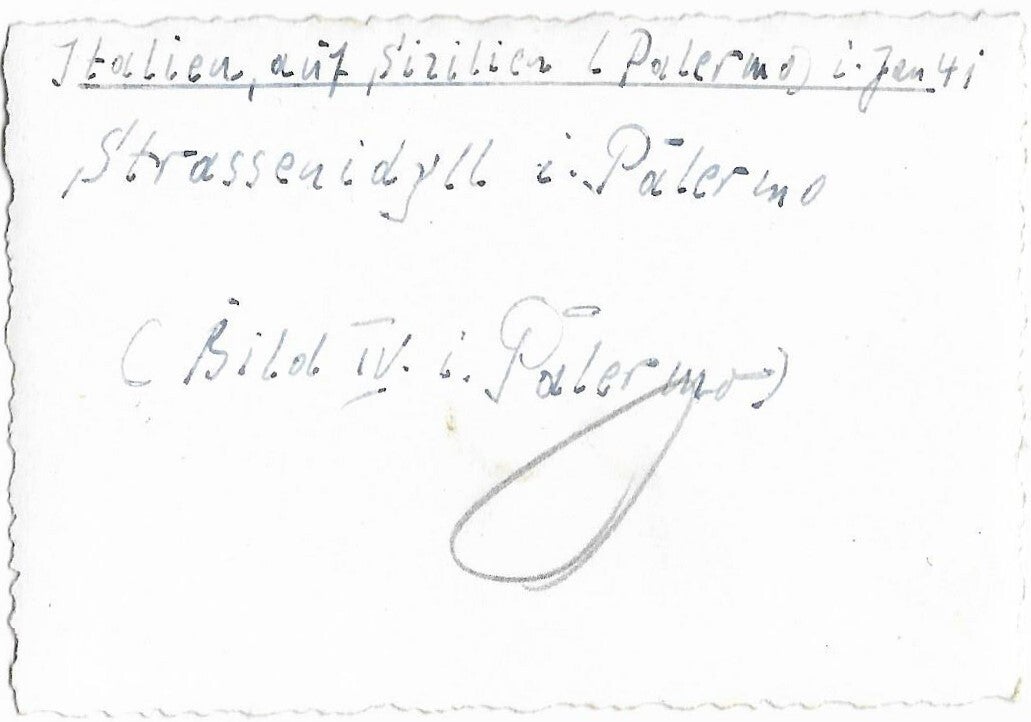 Italien, auf Sizilien (Palermo) i. Jan 41
Strassenidyll i. Palermo
(Bild IV. i. Palermo)